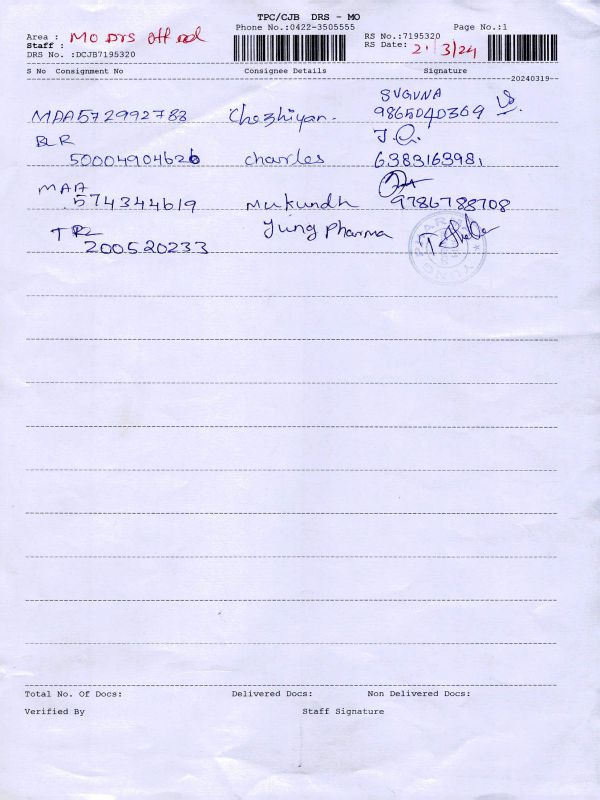 TPC/CJB DRS - MO
Phone No.:0422-3505555
Page No.:1
Area : MO DRS
Staff :
DRS No. :DCJB7195320
RS No.:7195320
RS Date: 21/3/24
S No Consignment No Consignee Details Signature
20240319
SUGUNA
MDA572992783 Chezhiyan. 9865040369
BLR J.
50004904626 charles 6383163981
MAA
574344619 Mukundh 9786788708
200520233 Jung Pharma
Total No. Of Docs: Delivered Docs: Non Delivered Docs:
Verified By Staff Signature